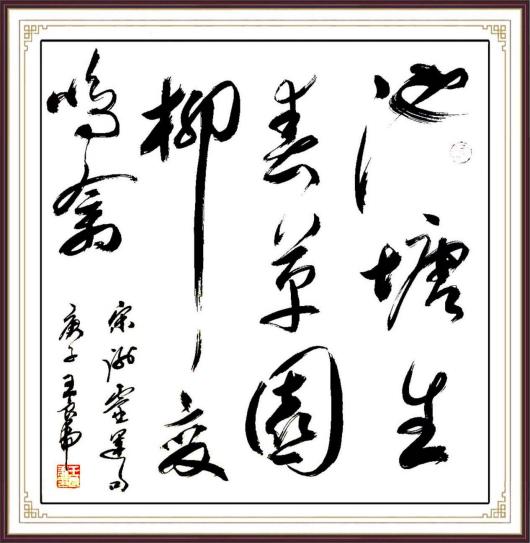 池塘生
春草園
柳變
鳴禽
宋謝靈運句
庚子王